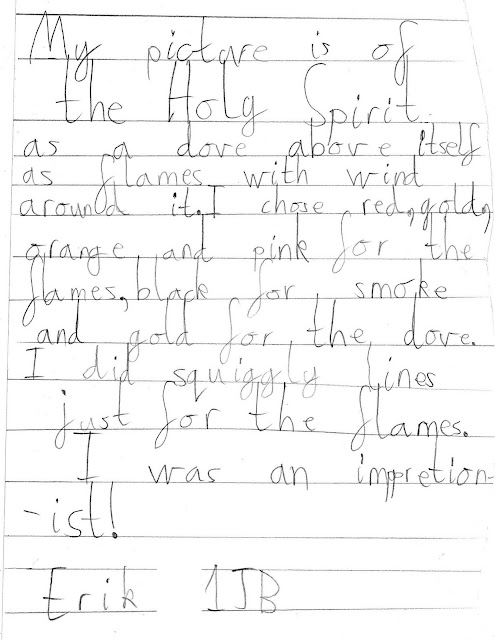 My picture is of
the Holy Spirit
as a dove above itself
as flames with wind
around it. I chose red, gold,
orange, and pink for the
flames, black for smoke
and gold for the dove.
I did squiggly lines
just for the flames.
I was an impretion-
-ist!
Erik 1JB